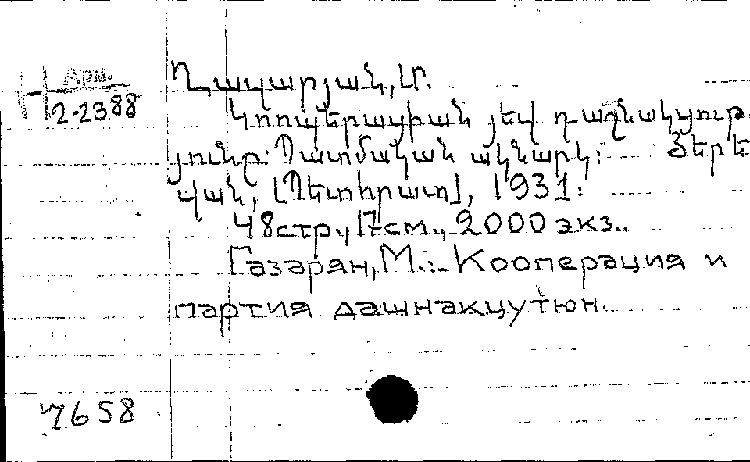 Арм.
2-2388
Ղազարյան, Մ.
Կոոպերացիան յեվ դաշնակցութ-
յունը: Պատմական ակնարկ: Յերե
վան, [Պետհրատ], 1931:
48стр., 17см., 2000 экз..
Газарян, М.:- Кооперация и
партия дашнакцутюн.
7658